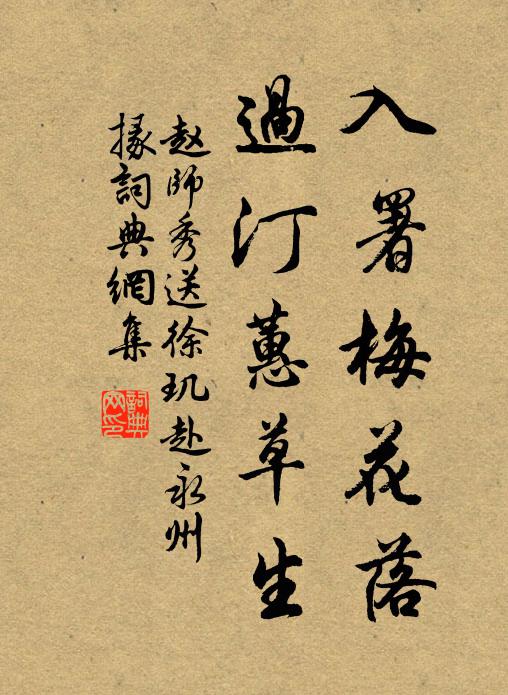 入署梅花落
過汀蕙草生
赵師秀送徐玑赴永州
掾詞典網集
詞典网印